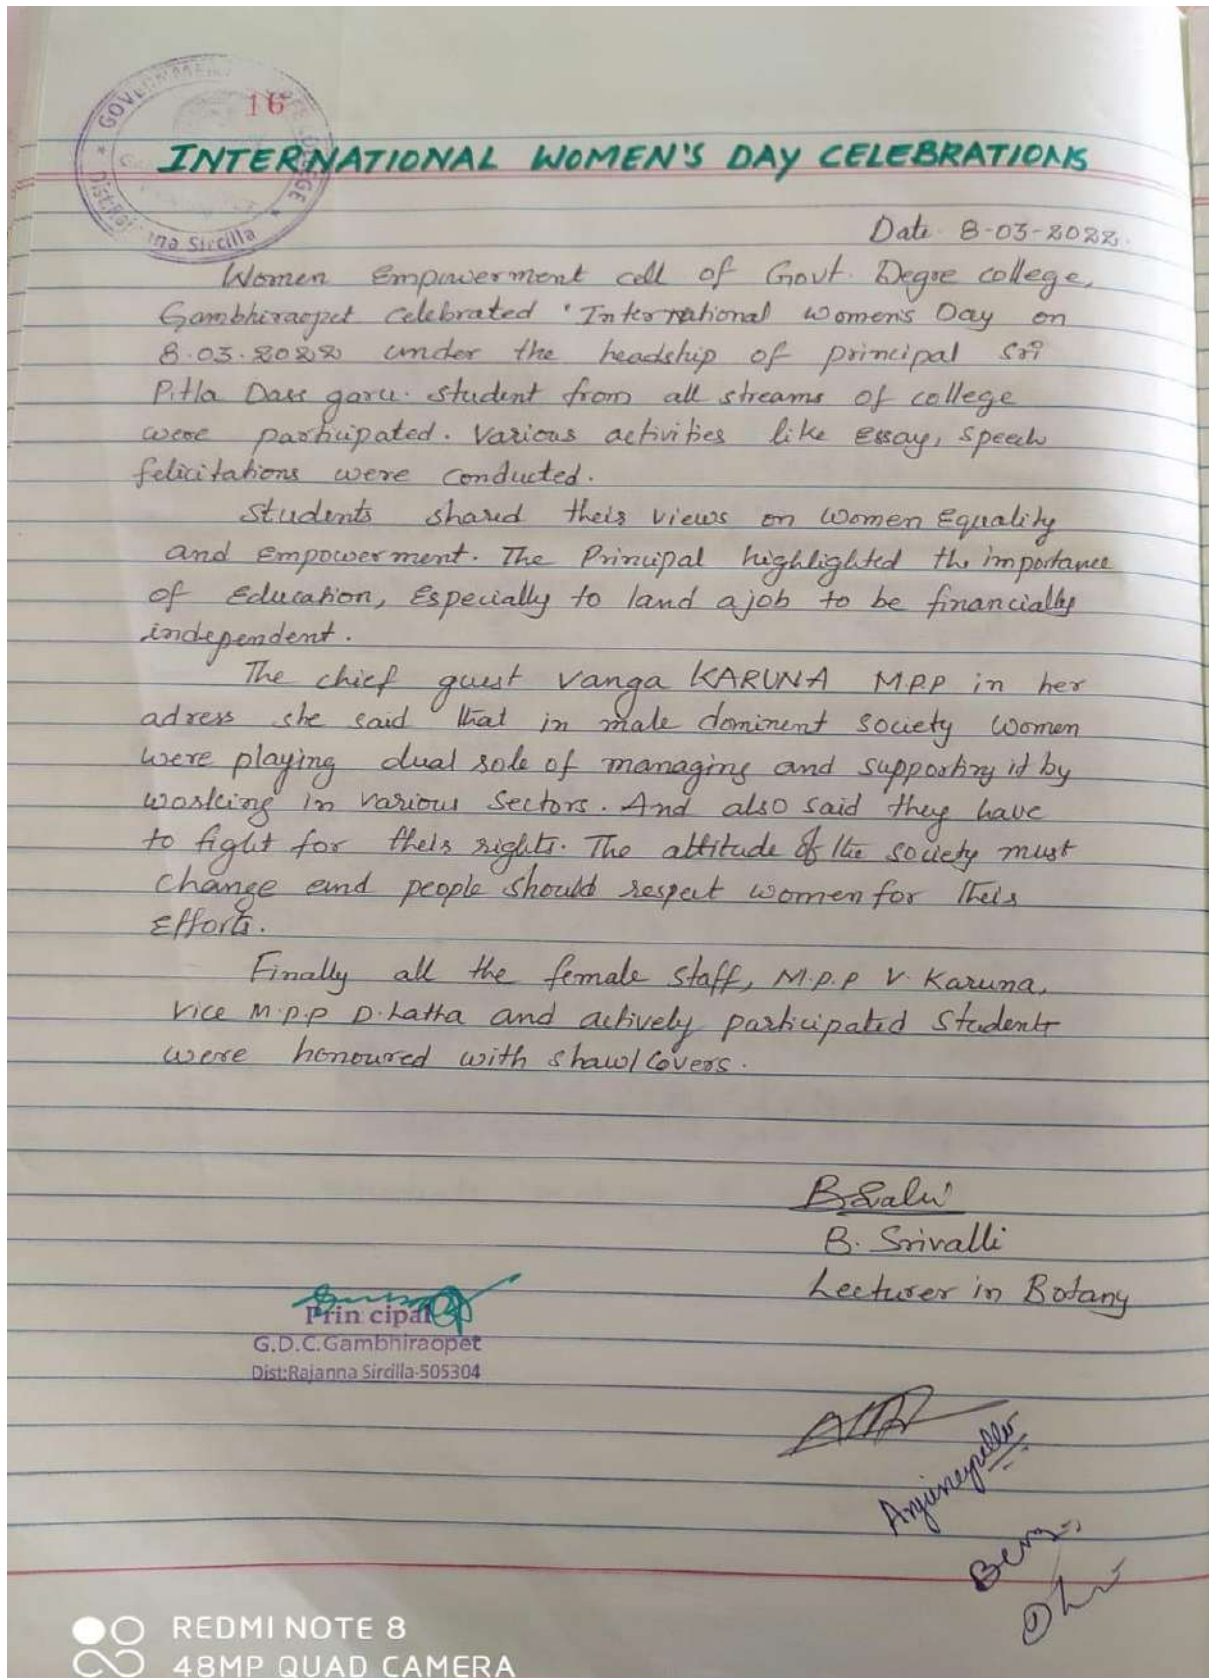 GOVERNMENT DEGREE COLLEGE
Dist:Rajanna Sircilla
16
INTERNATIONAL WOMEN'S DAY CELEBRATIONS
Date 8-03-2022.
Women Empowerment cell of Govt. Degre college,
Gambhiraopet celebrated 'International Women's Day on
8.03.2022 under the headship of principal Sri
Pitla Dass garu. student from all streams of college
were participated. Various activities like essay, speech
felicitations were conducted.
Students shared their views on women Equality
and Empowerment. The Principal highlighted the importance
of Education, Especially to land a job to be financially
independent.
The chief guest Vanga KARUNA M.P.P in her
adress she said that in male dominent society women
were playing dual role of managing and supporting it by
working in various sectors. And also said they have
to fight for their rights. The attitude of the society must
change and people should respect women for their
efforts.
Finally all the female staff, M.P.P V. Karuna,
Vice M.P.P D.Latha and actively participated students
were honoured with shawl/covers.
B. Srivalli
Lecturer in Botany
Principal
G.D.C.Gambhiraopet
Dist:Rajanna Sircilla-505304
REDMI NOTE 8
48MP QUAD CAMERA